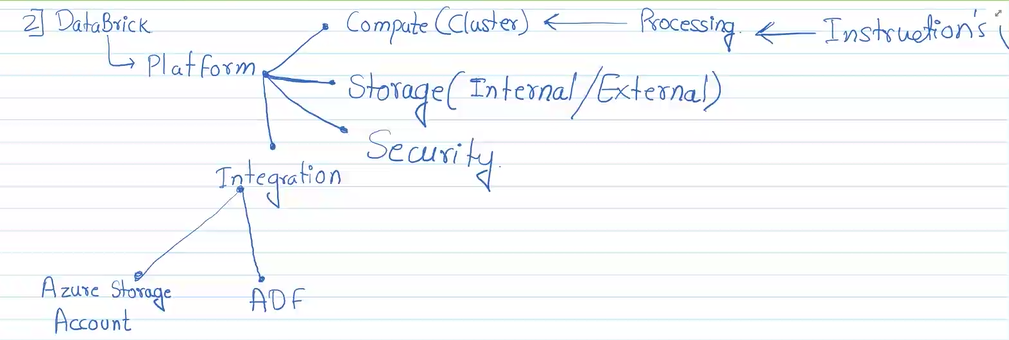 2] DataBrick
Compute (Cluster) ← Processing. ← Instruction's (
↳ Platform
Storage( Internal/External)
Security.
Integration
Azure Storage
Account
ADF